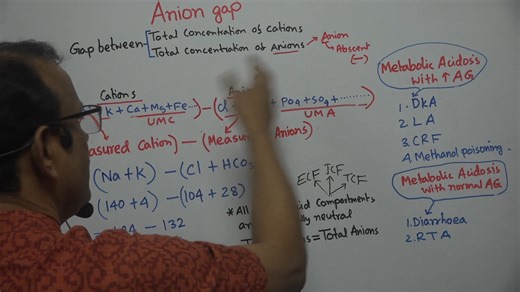 Anion gap
Gap between
Total concentration of cations
Total concentration of Anions
Anion
Abscent
(−)
Cations
K + Ca + Mg + Fe ....) − (Cl + PO4 + SO4 + ........)
UMC
UMA
asured Cation) − (Measured Anions)
(Na + K) − (Cl + HCO3
(140 + 4) − (104 + 28)
− 132
ECF
ICF
TCF
* All id compartments
are lly neutral
= Total Anions
Metabolic Acidosis
with ↑ AG
1. DKA
2. LA
3. CRF
4. Methanol poisoning.
Metabolic Acidosis
with normal AG
1. Diarrhoea
2. RTA